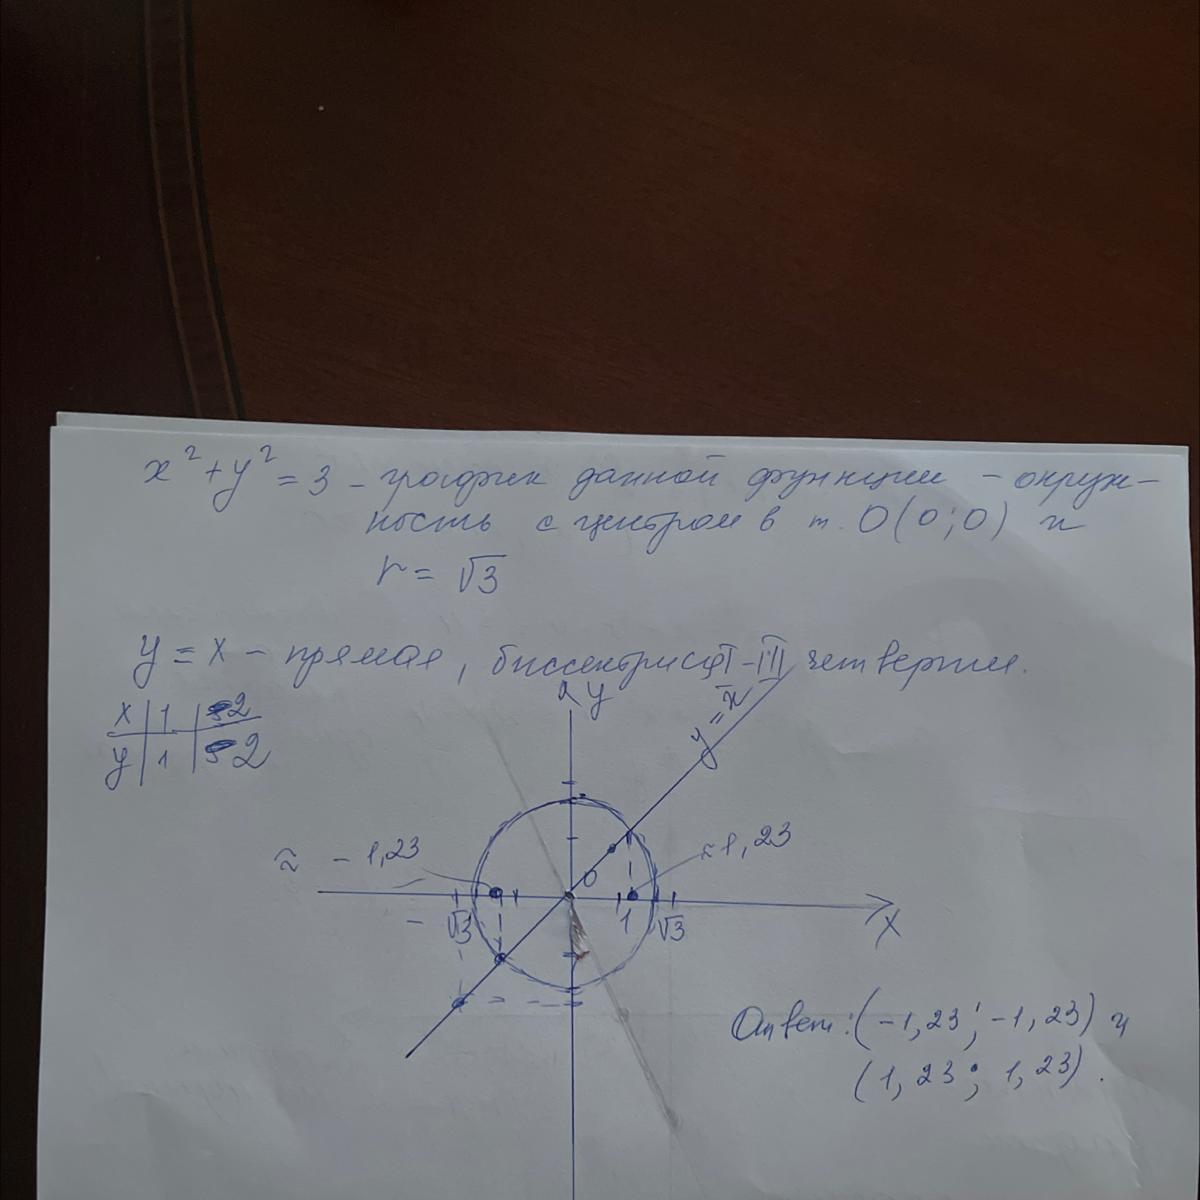 x² + y² = 3 – график данной функции – окруж-
ность с центром в т. O(0;0) и
r = √3
y = x – прямая, биссектриса I – III четвертей.
x | 1 | 2
y | 1 | 2
y
y = x
≈ – 1,23
≈ 1,23
0
– √3
1
√3
x
Ответ: (–1,23; –1,23) и
(1,23; 1,23).